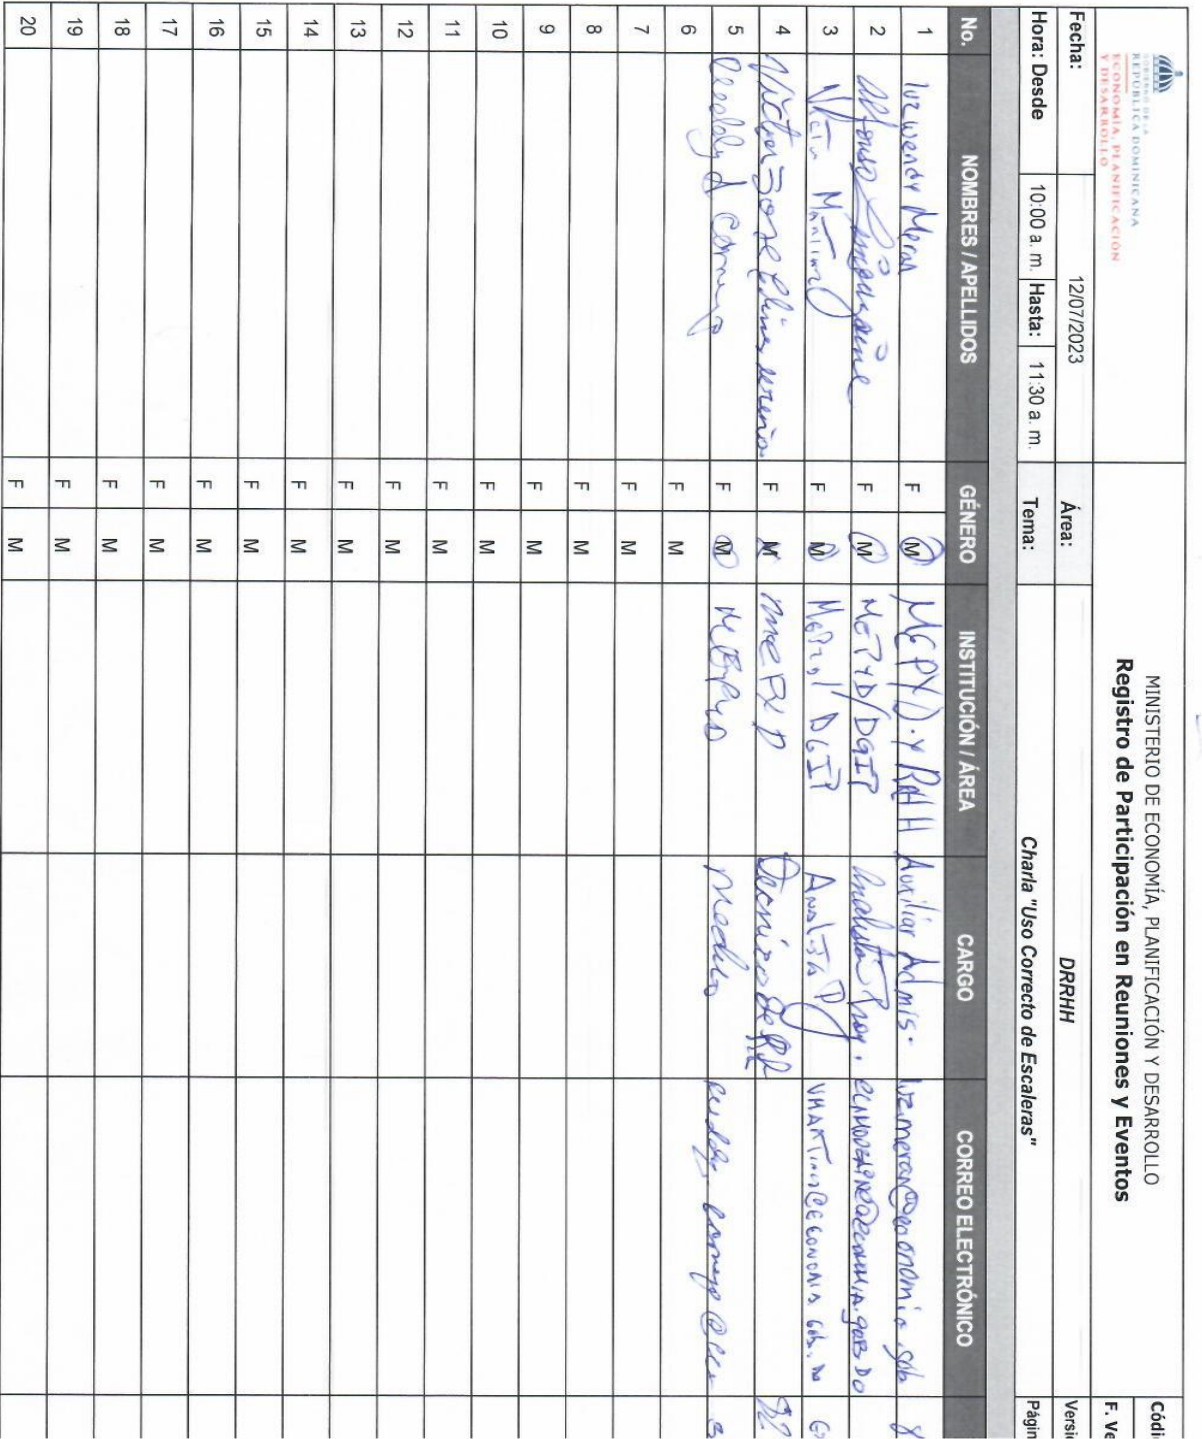 GOBIERNO DE LA
REPÚBLICA DOMINICANA
ECONOMÍA, PLANIFICACIÓN
Y DESARROLLO
MINISTERIO DE ECONOMÍA, PLANIFICACIÓN Y DESARROLLO
Registro de Participación en Reuniones y Eventos
Códi
F. Ve
Fecha: 12/07/2023 Área: DRRHH Versi
Hora: Desde 10:00 a. m. Hasta: 11:30 a. m. Tema: Charla "Uso Correcto de Escaleras" Págin
No. NOMBRES / APELLIDOS GÉNERO INSTITUCIÓN / ÁREA CARGO CORREO ELECTRÓNICO
1 luz wendy Meran F M MEPYD. y RHH Auxiliar Admis. luz.meran@economia.gob 8
2 Alfonso F M MEPYD/DGIP Analista Proy.
3 F M MEPyD/ DGIP Analista P VMARTinez@economia.gob.do
4 Victor Jose F M MEPYD Tecnico de RR
5 F M MEPYD Medico
6 F M
7 F M
8 F M
9 F M
10 F M
11 F M
12 F M
13 F M
14 F M
15 F M
16 F M
17 F M
18 F M
19 F M
20 F M